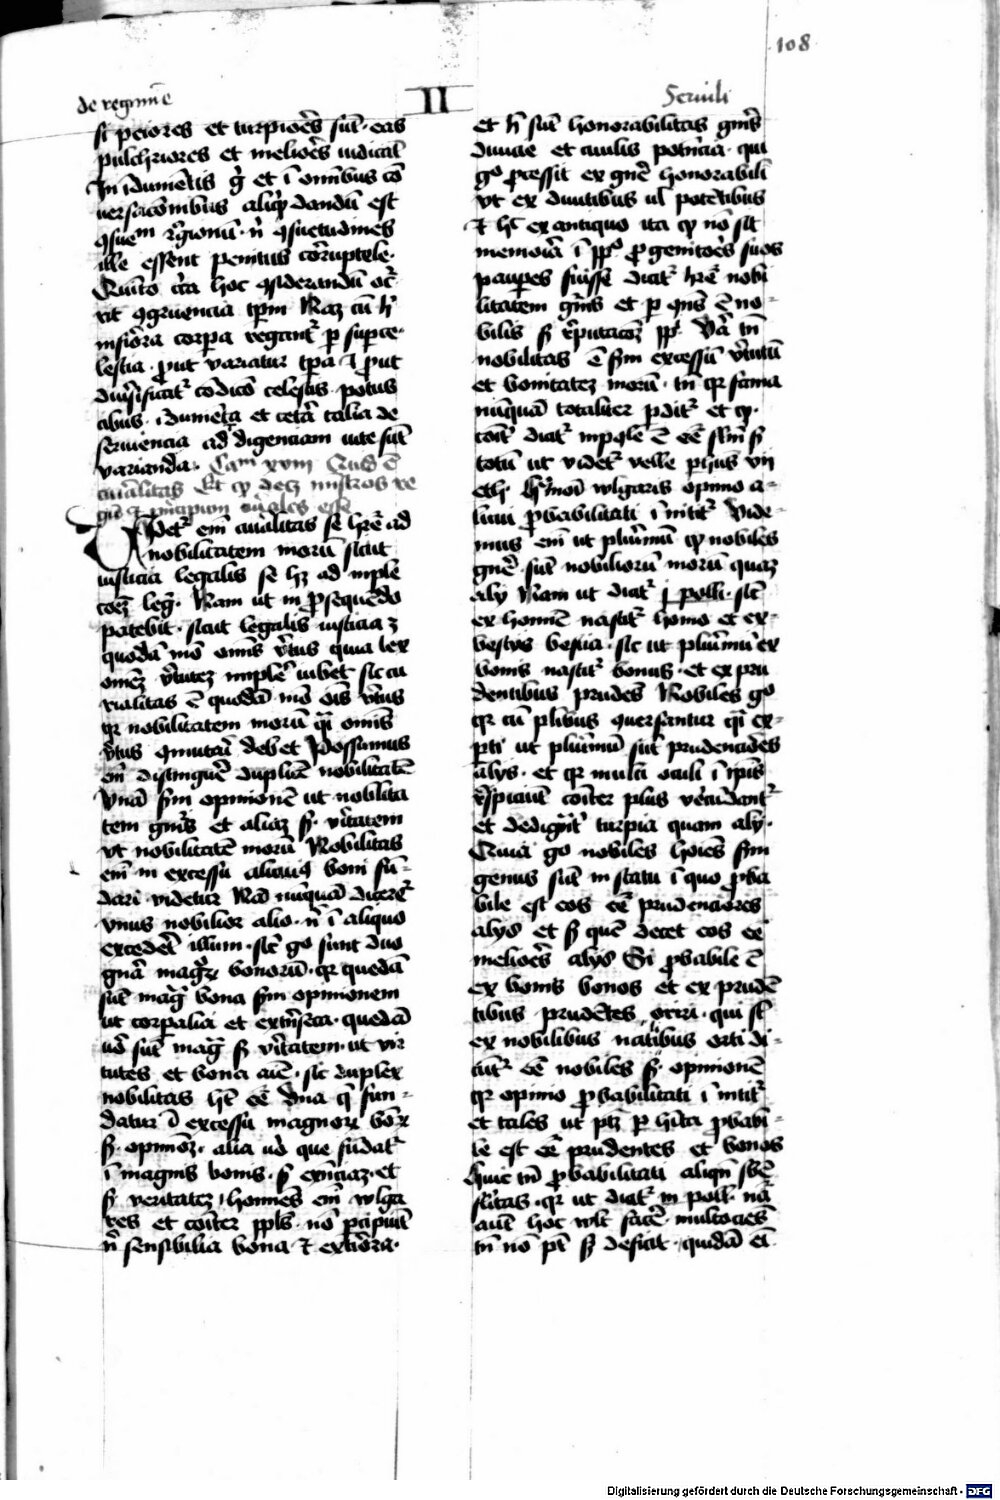 108
de regimine
II
Seruili
si peiores et turpiores sunt eas
pulchriores et meliores iudicant
In indumentis et in omnibus con
uersacionibus aliquid dandum est
regionum nisi consuetudines
ille essent penitus corruptele
Quinto circa hoc considerandum
congruencia temporum Nam cum hec
inferiora corpora regantur per superce
lestia prout variatur tempora et prout
diuersificatur condicio celestis potus
cibus indumenta et cetera talia de
seruiencia ad indigenciam vite sunt
varianda Cam xviii Quid est
curialitas Et quod decet ministros re
gum et principum curiales esse
Videtur enim curialitas se habere ad
nobilitatem morum sicut
iusticia legalis se habet ad imple
cionem legum Nam ut in prosequendo
patebit sicut legalis iusticia est
quodam modo omnis virtus quia lex
omnem virtutem implere iubet sic cu
rialitas est quodam modo omnis virtus
quia nobilitatem morum quasi omnis
virtus debet Possumus
enim distinguere duplicem nobilitatem
Vnam secundum opinionem ut nobilita
tem generis et aliam secundum veritatem
vt nobilitatem morum Nobilitas
enim in excessu alicuius boni fun
dari videtur Nam nunquam diceretur
vnus nobilior alio nisi in aliquo
excederet illum sicut ergo sunt duo
genera magnorum bonorum quia quedam
sunt magna bona secundum opinionem
ut corporalia et extrinseca quedam
vero sunt magna secundum veritatem ut vir
tutes et bona anime sic duplex
nobilitas habet esse vna que fun
datur in excessu magnorum bonorum
secundum opinionem alia vero que fundatur
in magnis bonis secundum et
secundum veritatem homines enim wlga
res et communiter populus non percipiunt
nisi sensibilia bona et exteriora
et hec sunt honorabilitas generis
diuicie et ciuilis potencia qui
ergo processit ex genere honorabili
vt ex diuitibus vel potentibus
et hoc ex antiquo ita quod non sit
memoria in populo progenitores suos
pauperes fuisse dicitur habere nobi
litatem generis et per consequens est no
bilis secundum reputacionem populi Vera tamen
nobilitas est secundum excessum virtutum
et bonitatem morum tamen quia fama
nunquam totaliter perditur et quod
communiter dicitur impossibile est esse falsum secundum
totum ut videtur velle philosophus vii
eth huiusmodi wlgaris opinio a
licui probabilitati innititur Vide
mus enim ut plurimum quod nobiles
genere sunt nobiliorum morum quam
alij Nam ut dicitur j poll sicut
ex homine nascitur homo et ex
bestijs bestia sic ut plurimum ex
bonis nascitur bonus et ex pru
dentibus prudens Nobiles ergo
quia cum pluribus conuersantur quasi ex
perti ut plurimum sunt prudenciores
alijs et quia multi oculi in ipsos
respiciunt communiter plus verecundantur
et dedignantur turpia quam alij
Quia ergo nobiles homines secundum
genus sunt in statu in quo proba
bile est eos esse prudenciores
alijs et secundum quem decet eos esse
meliores alijs Si probabile est
ex bonis bonos et ex pruden
tibus prudentes oriri qui sunt
ex nobilibus natibus orti di
cuntur esse nobiles secundum opinionem
que opinio probabilitati innititur
et tales ut patet per habita probabi
le est esse prudentes et bonos
huic tamen probabilitati aliquando subest
falsitas quia ut dicitur in poll natura
autem hoc vult facere multociens
tamen non potest sed deficit quidam enim
Digitalisierung gefördert durch die Deutsche Forschungsgemeinschaft - DFG